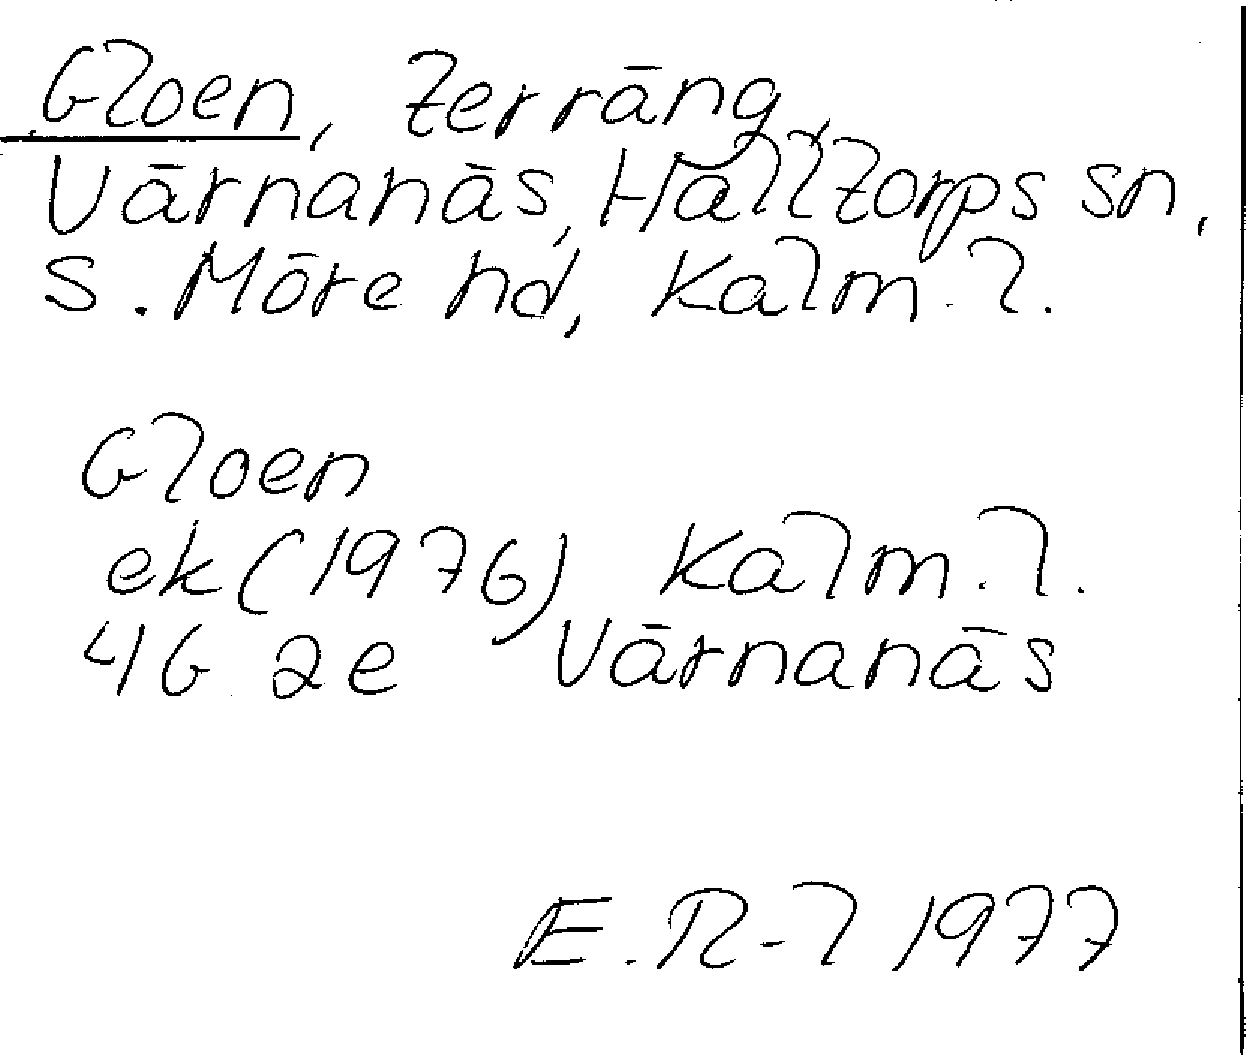 Gloen, terräng
Värnanäs, Halltorps sn,
S. Möre hd, Kalm. l.
Gloen
ek (1976) Kalm. l.
4G 2e Värnanäs
E. R-l 1977